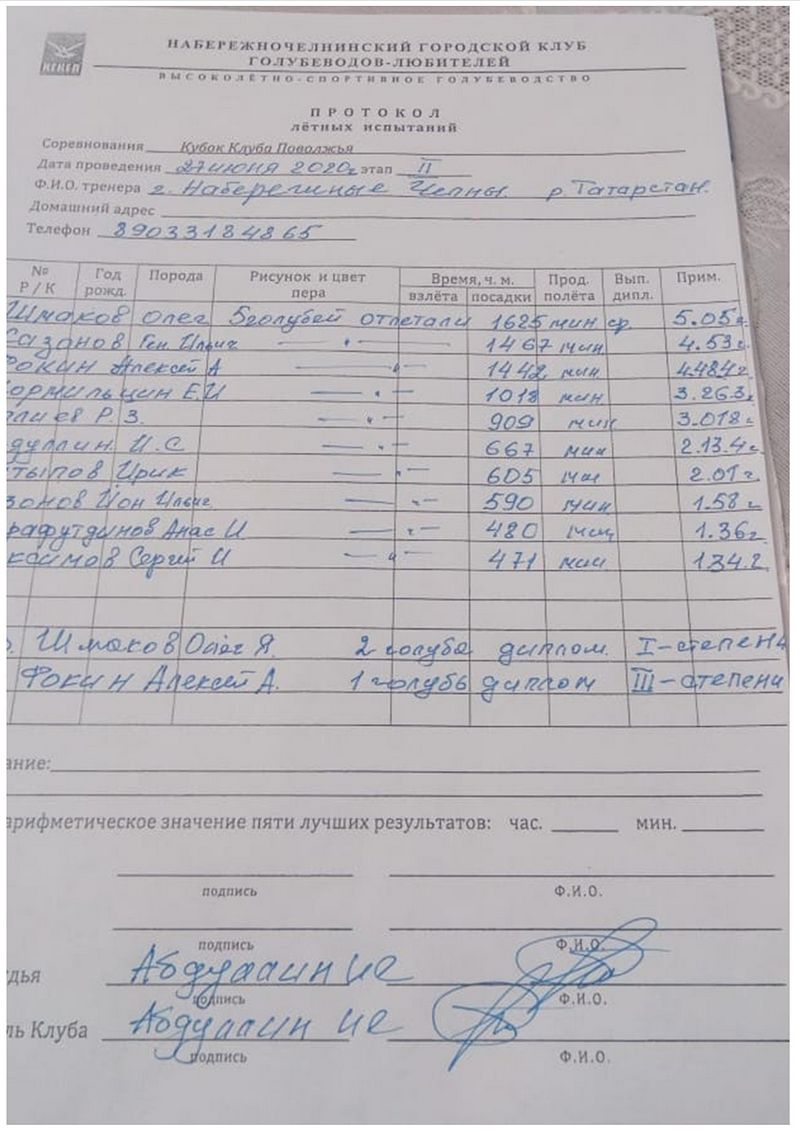 НКГКГЛ
НАБЕРЕЖНОЧЕЛНИНСКИЙ ГОРОДСКОЙ КЛУБ
ГОЛУБЕВОДОВ-ЛЮБИТЕЛЕЙ
ВЫСОКОЛЁТНО-СПОРТИВНОЕ ГОЛУБЕВОДСТВО
ПРОТОКОЛ
лётных испытаний
Соревнования Кубок Клуба Поволжья
Дата проведения 27 июня 2020г этап II
Ф.И.О. тренера г. Набережные Челны. р. Татарстан.
Домашний адрес
Телефон 89033184865
№ Р / К Год рожд. Порода Рисунок и цвет пера Время, ч. м. взлёта посадки Прод. полёта Вып. дипл. Прим.
Шмаков Олег 5 голубей отлетали 1625 мин ср. 5.05
азонов Ген. Ильич — " — 1467 мин 4.53
Фокин Алексей А — " — 1442 мин 4.484г
ормильцин Е.И — " — 1018 мин 3.263
алиев Р. З. — " — 909 мин 3.018г
дуллин И.С — " — 667 мин 2.13.4г
тыпов Ирик — " — 605 мин 2.01г
зонов Ион Ильич — " — 590 мин 1.58г
рафутдинов Анас И — " — 480 мин 1.36г
ксимов Сергей И — " — 471 мин 1.34.2
Шмаков Олег Я. 2 голубя диплом. I-степени
Фокин Алексей А. 1 голубь диплом III-степени
ание:
арифметическое значение пяти лучших результатов: час. мин.
подпись Ф.И.О.
подпись Ф.И.О.
дья Абдуллин ИС
подпись Ф.И.О.
ль Клуба Абдуллин ИС
подпись Ф.И.О.